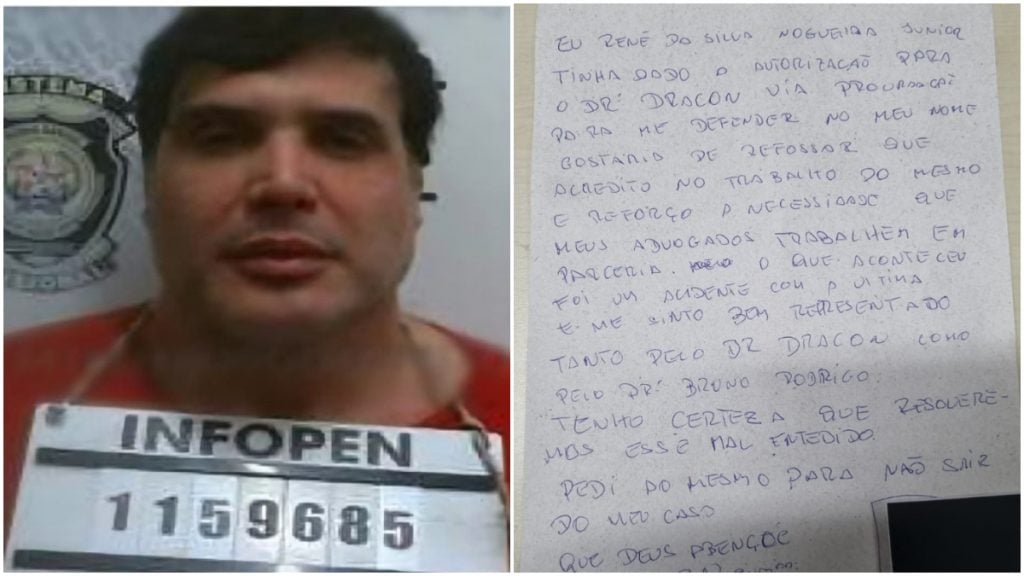 SISTEMA
INFOPEN
1159685
EU RENÊ DA SILVA NOGUEIRA JUNIOR
TINHA DADO A AUTORIZAÇÃO PARA
O DR: DRACON VIA PROCURAÇÃO
PARA ME DEFENDER NO MEU NOME
GOSTARIA DE REFOSSAR QUE
ACREDITO NO TRABALHO DO MESMO
E REFORÇO A NECESSIDADE QUE
MEUS ADVOGADOS TRABALHEM EM
PARCERIA. O QUE ACONTECEU
FOI UM ACIDENTE COM A VITIMA
E ME SINTO BEM REPRESENTADO
TANTO PELO DR DRACON COMO
PELO DR: BRUNO RODRIGO.
TENHO CERTEZA QUE RESOLVERE-
MOS ESSE MAL ENTEDIDO
PEDI AO MESMO PARA NÃO SAIR
DO MEU CASO
QUE DEUS ABENÇOE